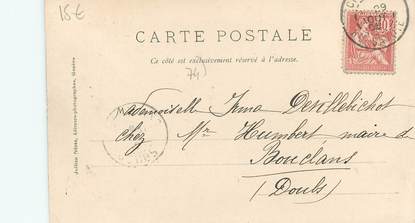 15€
CARTE POSTALE
Ce côté est exclusivement réservé à l'adresse.
74)
Mademoiselle Irma Desillebichot
chez Mr Humbert, maire d
Bouclans
(Doubs)
Jullien frères, Editeurs-photographes, Genève